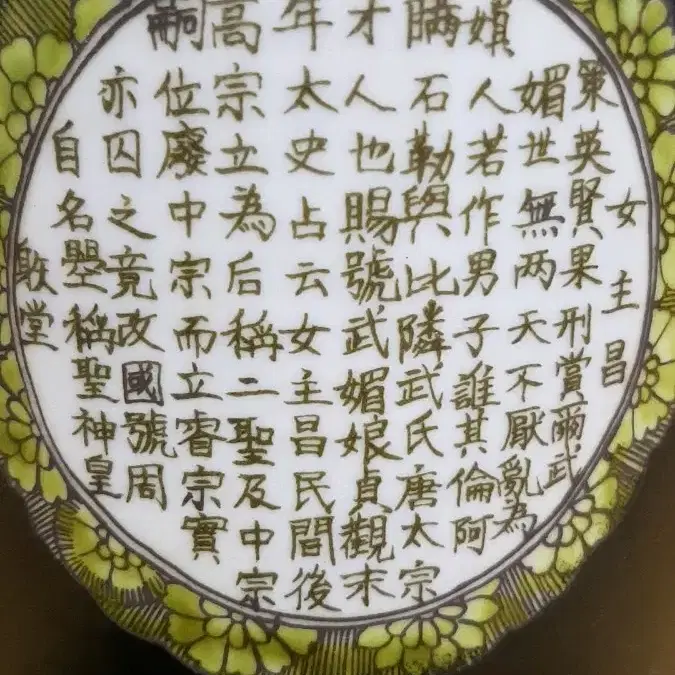 女主昌
策英賢果刑賞爾武
媚世無两天不厭亂為
媍人若作男子誰其倫阿
瞞石勒與比隣武氏唐太宗
才人也賜號武媚娘貞觀末
年太史占云女主昌民間後
高宗立為后稱二聖及中宗
嗣位廢中宗而立睿宗實
亦囚之竟改國號周
自名曌稱聖神皇
敢堂